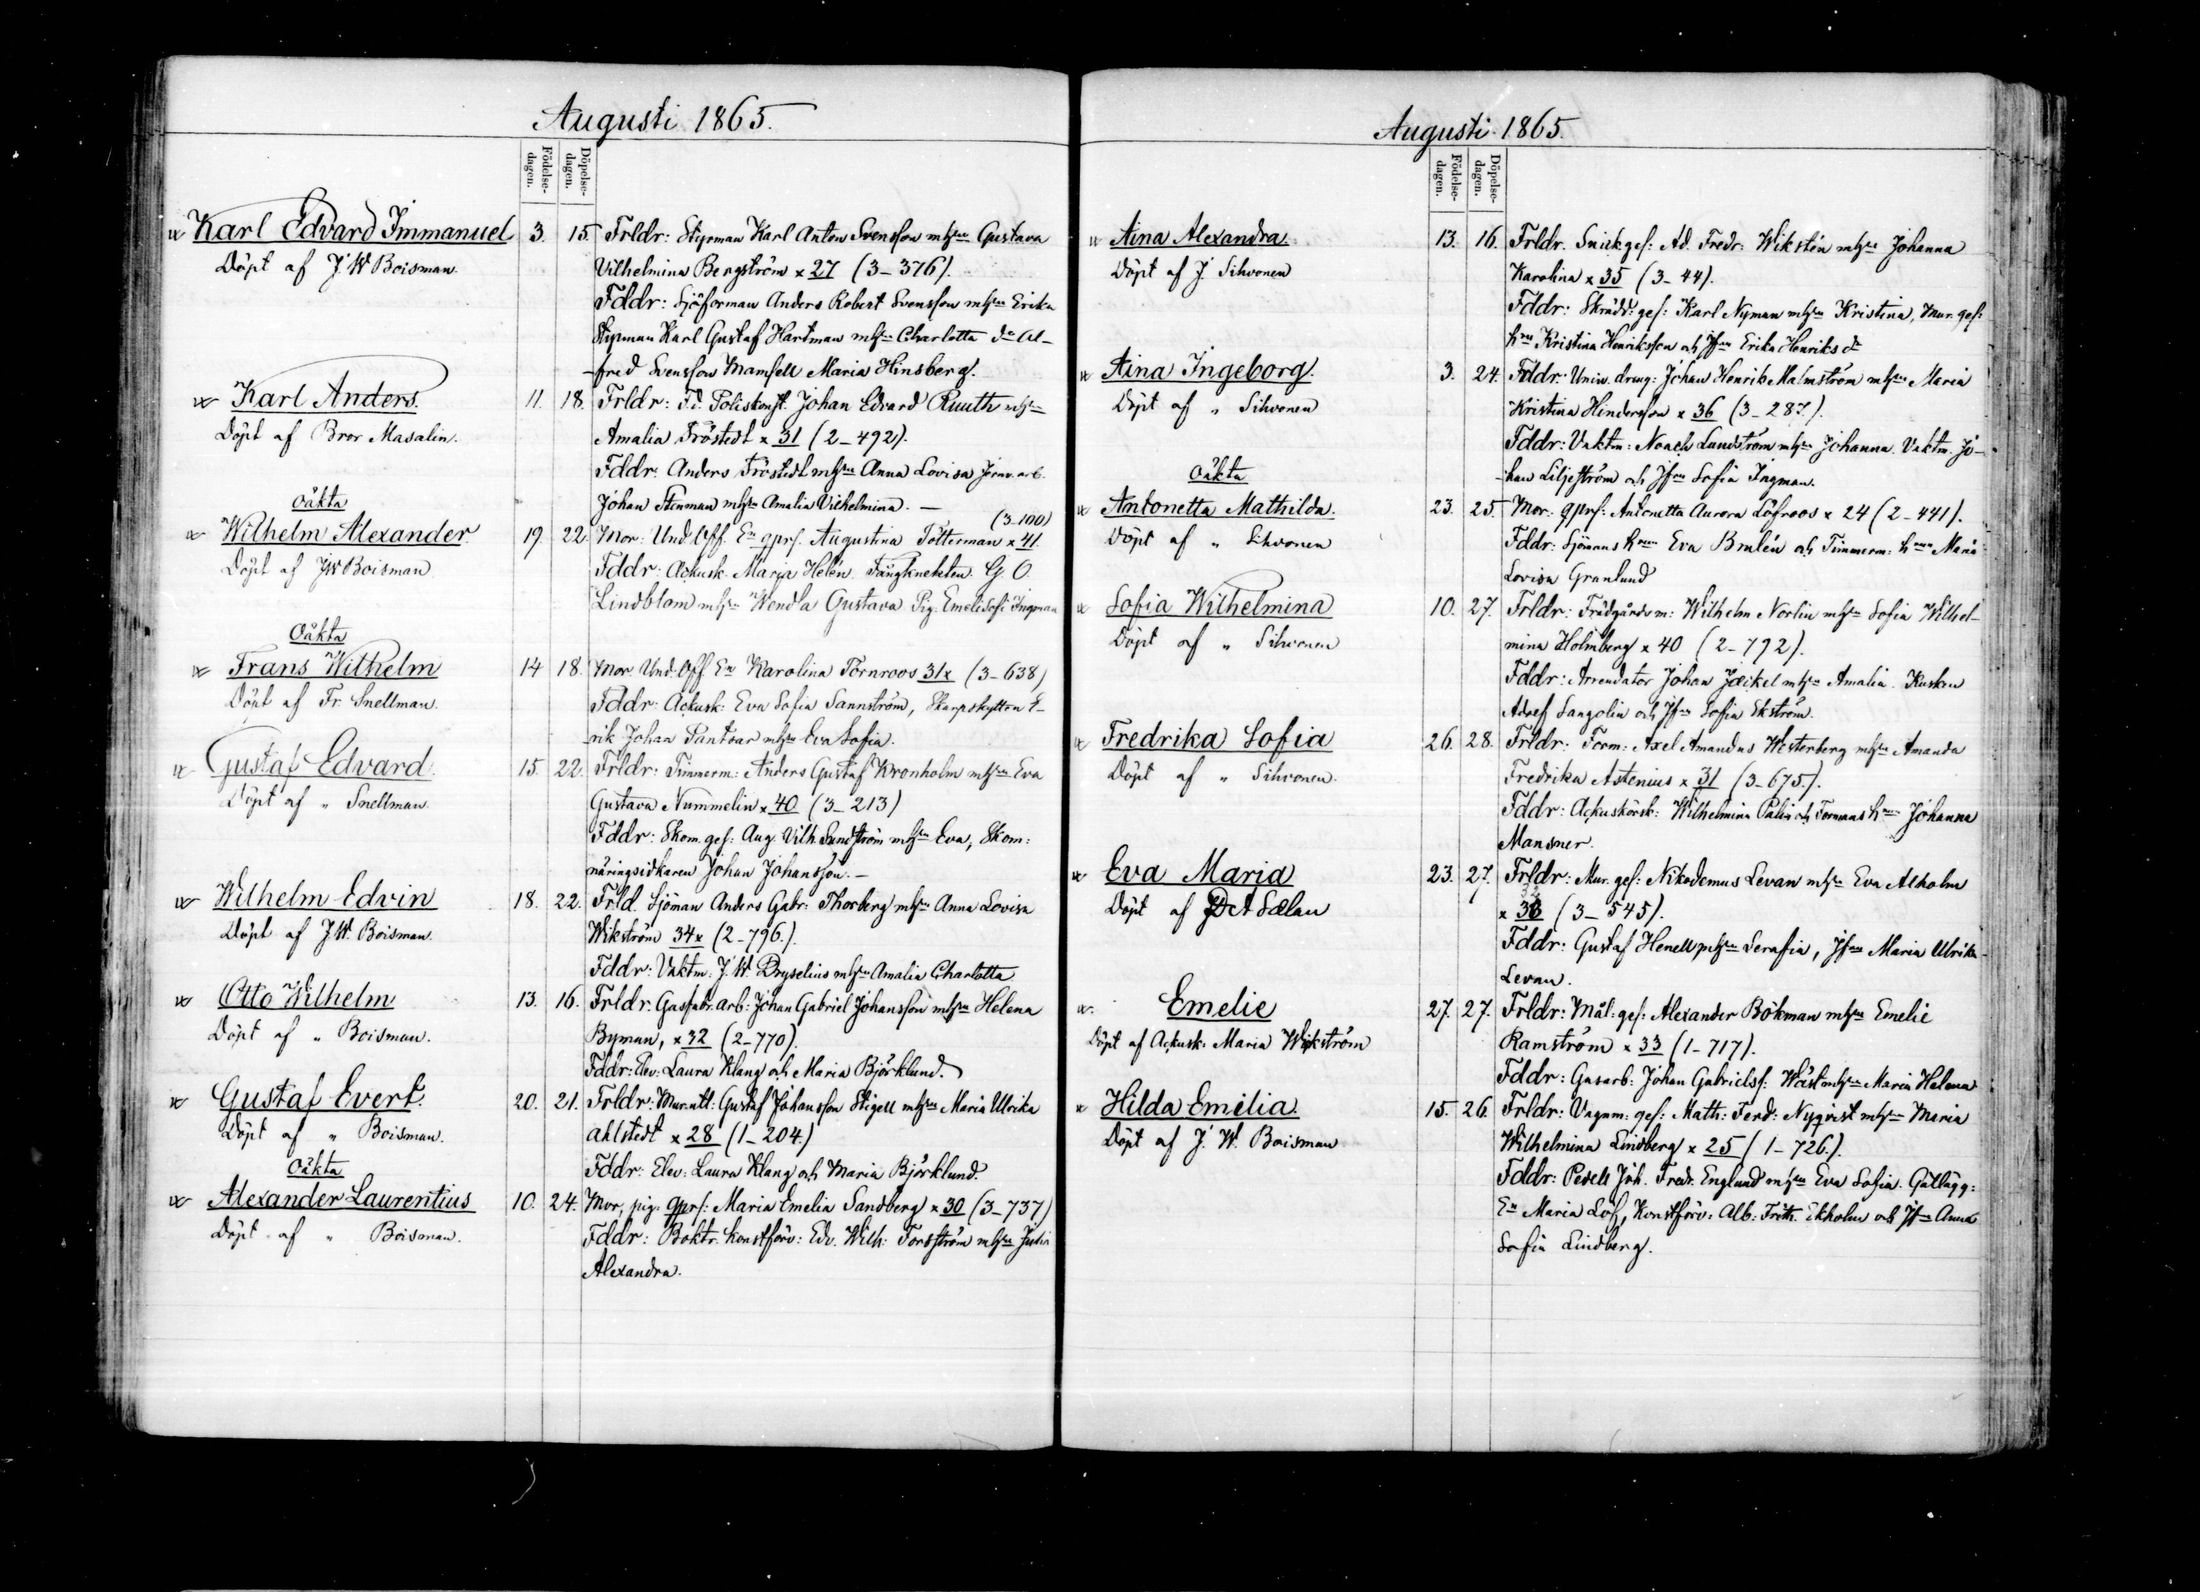 Augusti 1865.
Födelse-dagen.
Döpelse-dagen.
Karl Edvard Immanuel 3. 15. Frldr: Styrman Karl Anton Svensson mhstru Gustava
Döpt af J. W Boisman. Vilhelmina Bergström x 27 (3–376).
Fddr: Sjöforman Anders Robert Svensson mhstru Erika
Styrman Karl Gustaf Hartman mhstru Charlotta Al-
fred Svensson Mamsell Maria Hinsberg.
Karl Anders. 11. 18. Frldr: Fd. Poliskonst. Johan Edvard Ruuth mhstru
Döpt af Bror Masalin. Amalia Fröstedt x 31 (2–492).
Fddr: Anders Fröstedt mhstru Anna Lovisa Jernv. arb.
Johan Stenman mhstru Amalia Vilhelmina. –
Oäkta (3–100)
Wilhelm Alexander 19. 22. Mor: Und. Off. En qprs. Augustina Tötterman x 41.
Döpt af J W Boisman Fddr: Ackusk. Maria Helén. Fångknekten. G. O.
Lindblom mhstru Wendla Gustava Pig. Emeli Sofi Ingman
Oäkta
Frans Wilhelm 14 18. Mor Und. Off. En Karolina Törnroos 31x (3–638)
Döpt af Fr. Snellman. Fddr: Ackusk: Eva Sofia Sannström, Skarpskytten E-
rik Johan Pantsar mhstru Eva Sofia.
Gustaf Edvard 15. 22. Frldr: Timmerm: Anders Gustaf Kronholm mhstru Eva
Döpt af „ Snellman. Gustava Nummelin x 40 (3–213)
Fddr: Skom. ges: Aug. Vilh Sundström mhstru Eva, Skom:
näringsidkaren Johan Johansson. –
Wilhelm Edvin 18. 22. Frld. Sjöman Anders Gabr: Thorberg mhstru Anna Lovisa
Döpt af J. W. Boisman. Wikström 34x (2–796.).
Fddr: Vaktm: J. W. Dryselius mhstru Amalia Charlotta
Otto Wilhelm 13. 16. Frldr. Gasfabr. arb: Johan Gabriel Johansson mhstru Helena
Döpt af „ Boisman. Byman, x 32 (2–770).
Fddr: Elev: Laura Klang och Maria Björklund.
Gustaf Evert. 20. 21. Frldr: Mur. utl: Gustaf Johansson Stigell mhstru Maria Ulrika
Döpt af „ Boisman. Ahlstedt x 28 (1–204.)
Fddr: Elev: Laura Klang och Maria Björklund.
Oäkta
Alexander Laurentius 10. 24. Mor, pig. qprs: Maria Emelia Sandberg x 30 (3–737)
Döpt af „ Boisman. Fddr: Boktr. konstförv: Edv. Wilh: Forsström mhstru Julia
Alexandra.
Augusti 1865.
Födelse-dagen.
Döpelse-dagen.
Aina Alexandra. 13. 16. Frldr. Snickges: Ad. Fredr: Wikstén mhstru Johanna
Döpt af J. Sihvonen Karolina x 35 (3–44).
Fddr: Skrädd: ges: Karl Nyman mhstru Kristina, Mur. ges:
hru Kristina Henriksson och Jfru Erika Henriks dr
Aina Ingeborg. 3. 24. Fddr: Univ. dreng: Johan Henrik Malmström mhstru Maria
Döpt af „ Sihvonen Kristina Hindersson x 36 (3–287.).
Fddr: Vaktm: Noach Lundström mhstru Johanna. Vaktm. Jo-
han Liljeström och Jfru Sofia Ingman.
Oäkta
Antonetta Mathilda. 23. 25. Mor: qprs: Antonetta Aurora Löfroos x 24 (2–441).
Döpt af „ Sihvonen Fddr: Sjömans hrun Eva Brulén och Timmerm: hrun Maria
Lovisa Granlund
Sofia Wilhelmina 10. 27. Frldr: Trädgårdsm: Wilhelm Norlin mhstru Sofia Wilhel-
Döpt af „ Sihvonen mina Holmberg x 40 (2–792).
Fddr: Arrendator Johan Jäikel mhstru Amalia. Kusken
Adolf Sangolin och Jfru Sofia Ekström.
Fredrika Sofia 26. 28. Frldr: Form: Axel Amandus Westerberg mhstru Amanda
Döpt af „ Sihvonen. Fredrika Astenius x 31 (3–675.).
Fddr: Ackuskörsk: Wilhelmina Palin och Formans hrun Johanna
Mansner.
Eva Maria 23. 27. Frldr: Mur. ges: Nikodemus Levan mhstru Eva Alholm
Döpt af Sælan x 33 (3–545).
Fddr: Gustaf Henell mhstru Serafia, Jfru Maria Ulrika
Levan.
Emelie 27. 27. Frldr: Mål: ges: Alexander Bökman mhstru Emelie
Döpt af Ackusk: Maria Wikström Ramström x 33 (1–717).
Fddr: Gasarb: Johan Gabrielss: Wäst mhstru Maria Helena
Hilda Emilia. 15. 26. Frldr: Vagnm: ges: Math: Ferd: Nyqvist mhstru Maria
Döpt af J. W. Boisman Wilhelmina Lindberg x 25 (1–726.).
Fddr: Pedell Joh. Fredr. Englund mhstru Eva Sofia. Gatlägg:
En Maria Löf, Konstförv: Alb: Frith. Ekholm och Jfru Anna
Sofia Lindberg.